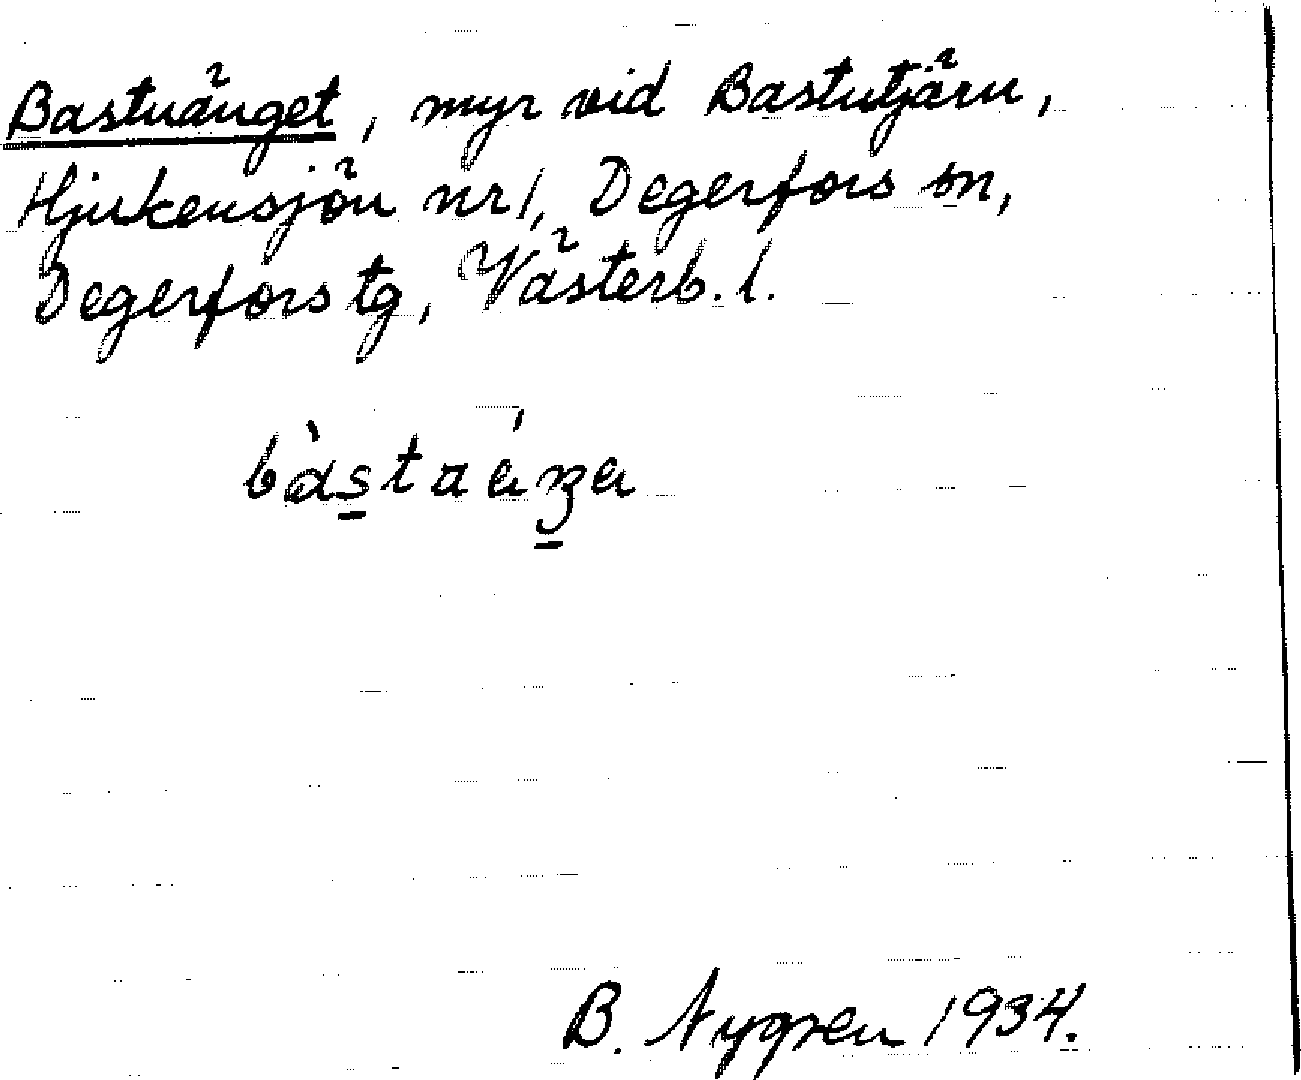 Bastuänget, myr vid Bastutjärn,
Hjukensjön nr 1, Degerfors sn,
Degerfors tg, Västerb. l.
B. Nygren 1934.